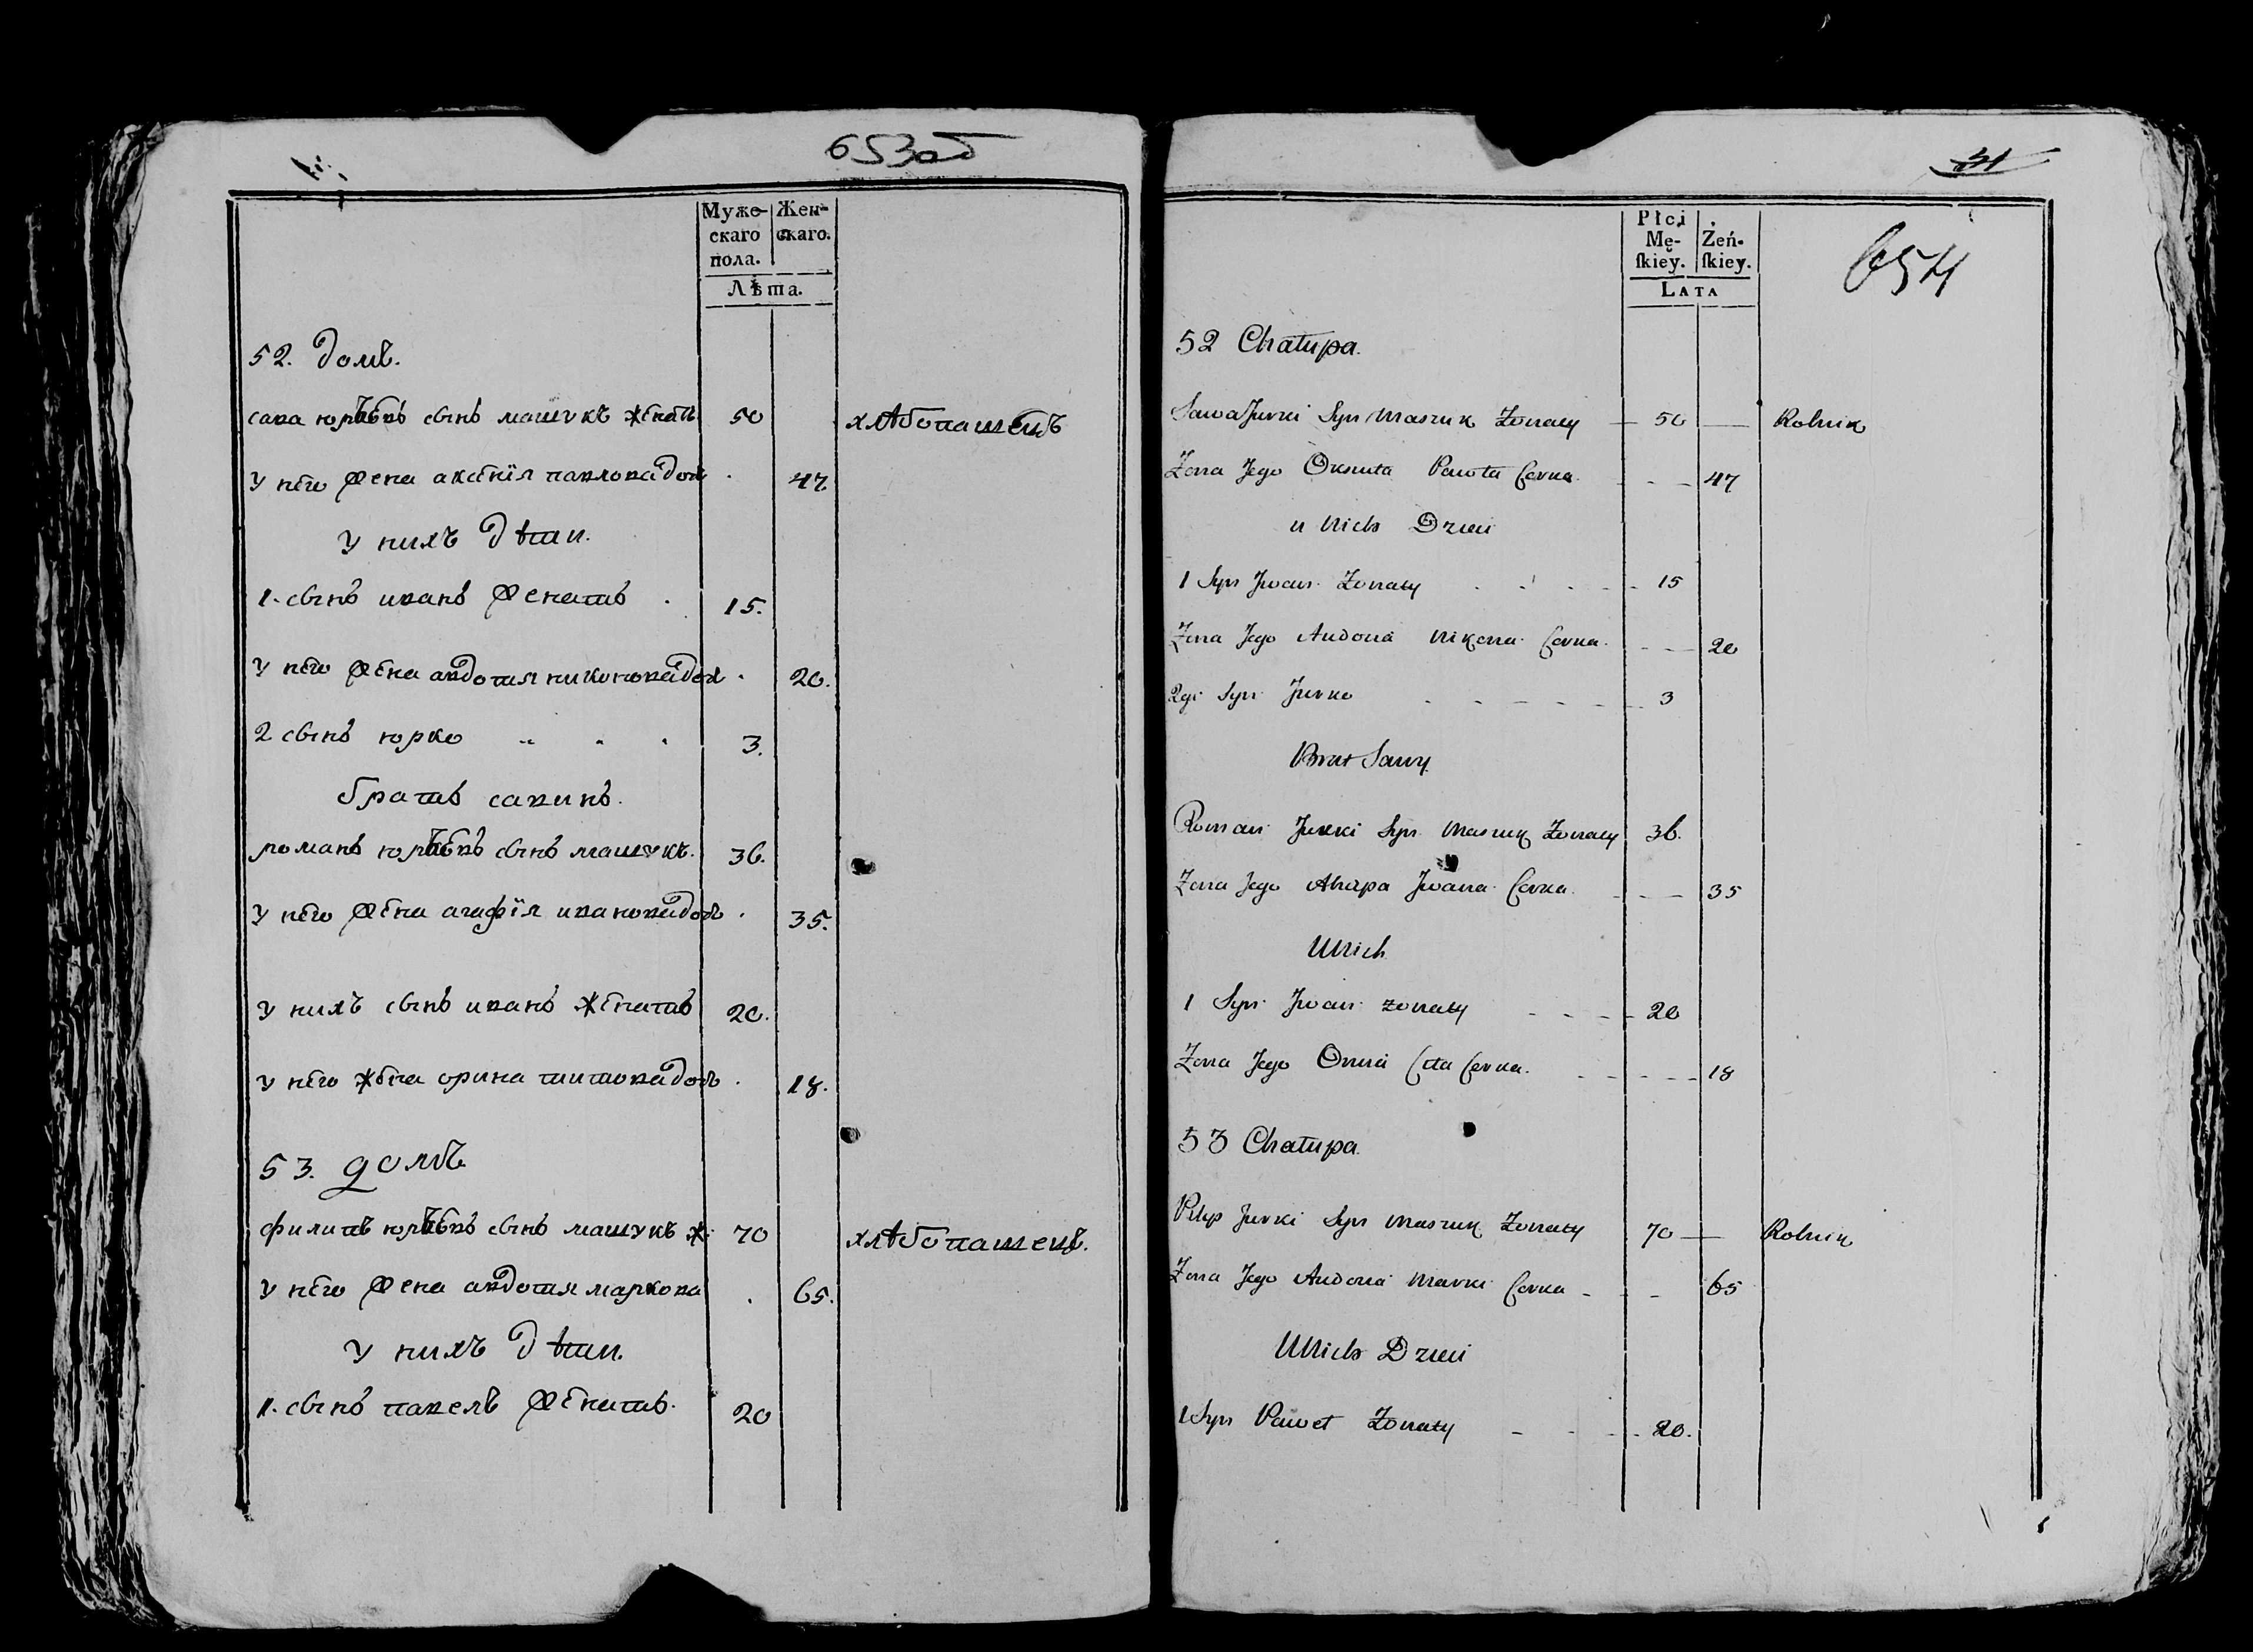 653об
Муже- Жен-
скаго скаго.
пола.
Лѣта.
52. домъ.
сава юрковъ сынъ машукъ женатъ 50 хлѣбопашецъ
у него жена аксенія павлова дочь 47
у нихъ дѣти.
1. сынъ иванъ женатъ 15.
у него жена авдотия никонова доч 20.
2 сынъ юрко 3.
братъ савинъ.
романъ юрковъ сынъ машукъ. 36.
у него жена агафія иванова доч 35.
у нихъ сынъ иванъ женатъ 20.
у него жена орина титова доч 18.
53. домъ
филипъ юрковъ сынъ машукъ ж: 70 хлѣбопашецъ.
у него жена авдотия маркова 65.
у нихъ дѣти.
1. сынъ павелъ женатъ. 20
31
654
Płci
Mę- Żeń-
ſkiey. ſkiey.
LATA
52 Chałupa.
Sawa Jurki Syn Maszuk Żonaty 50 Rolnik
Żona Jego Oksiuta Pawła Corka 47
u Nich Dzieci
1 Syn Jwan Żonaty 15
Żona Jego Audocia Nikona Corka 20
2gi Syn Jurko 3
Brat Sawy
Roman Jurki Syn Maszuk Żonaty 36.
Żona Jego Ahapa Jwana Corka 35
U Nich
1 Syn Jwan żonaty 20
Żona Jego Corka 18
53 Chałupa.
Pilip Jurki Syn Maszuk Żonaty 70 Rolnik
Żona Jego Audocia Marki Corka 65
U Nich Dzieci
1 Syn Paweł Żonaty 20.